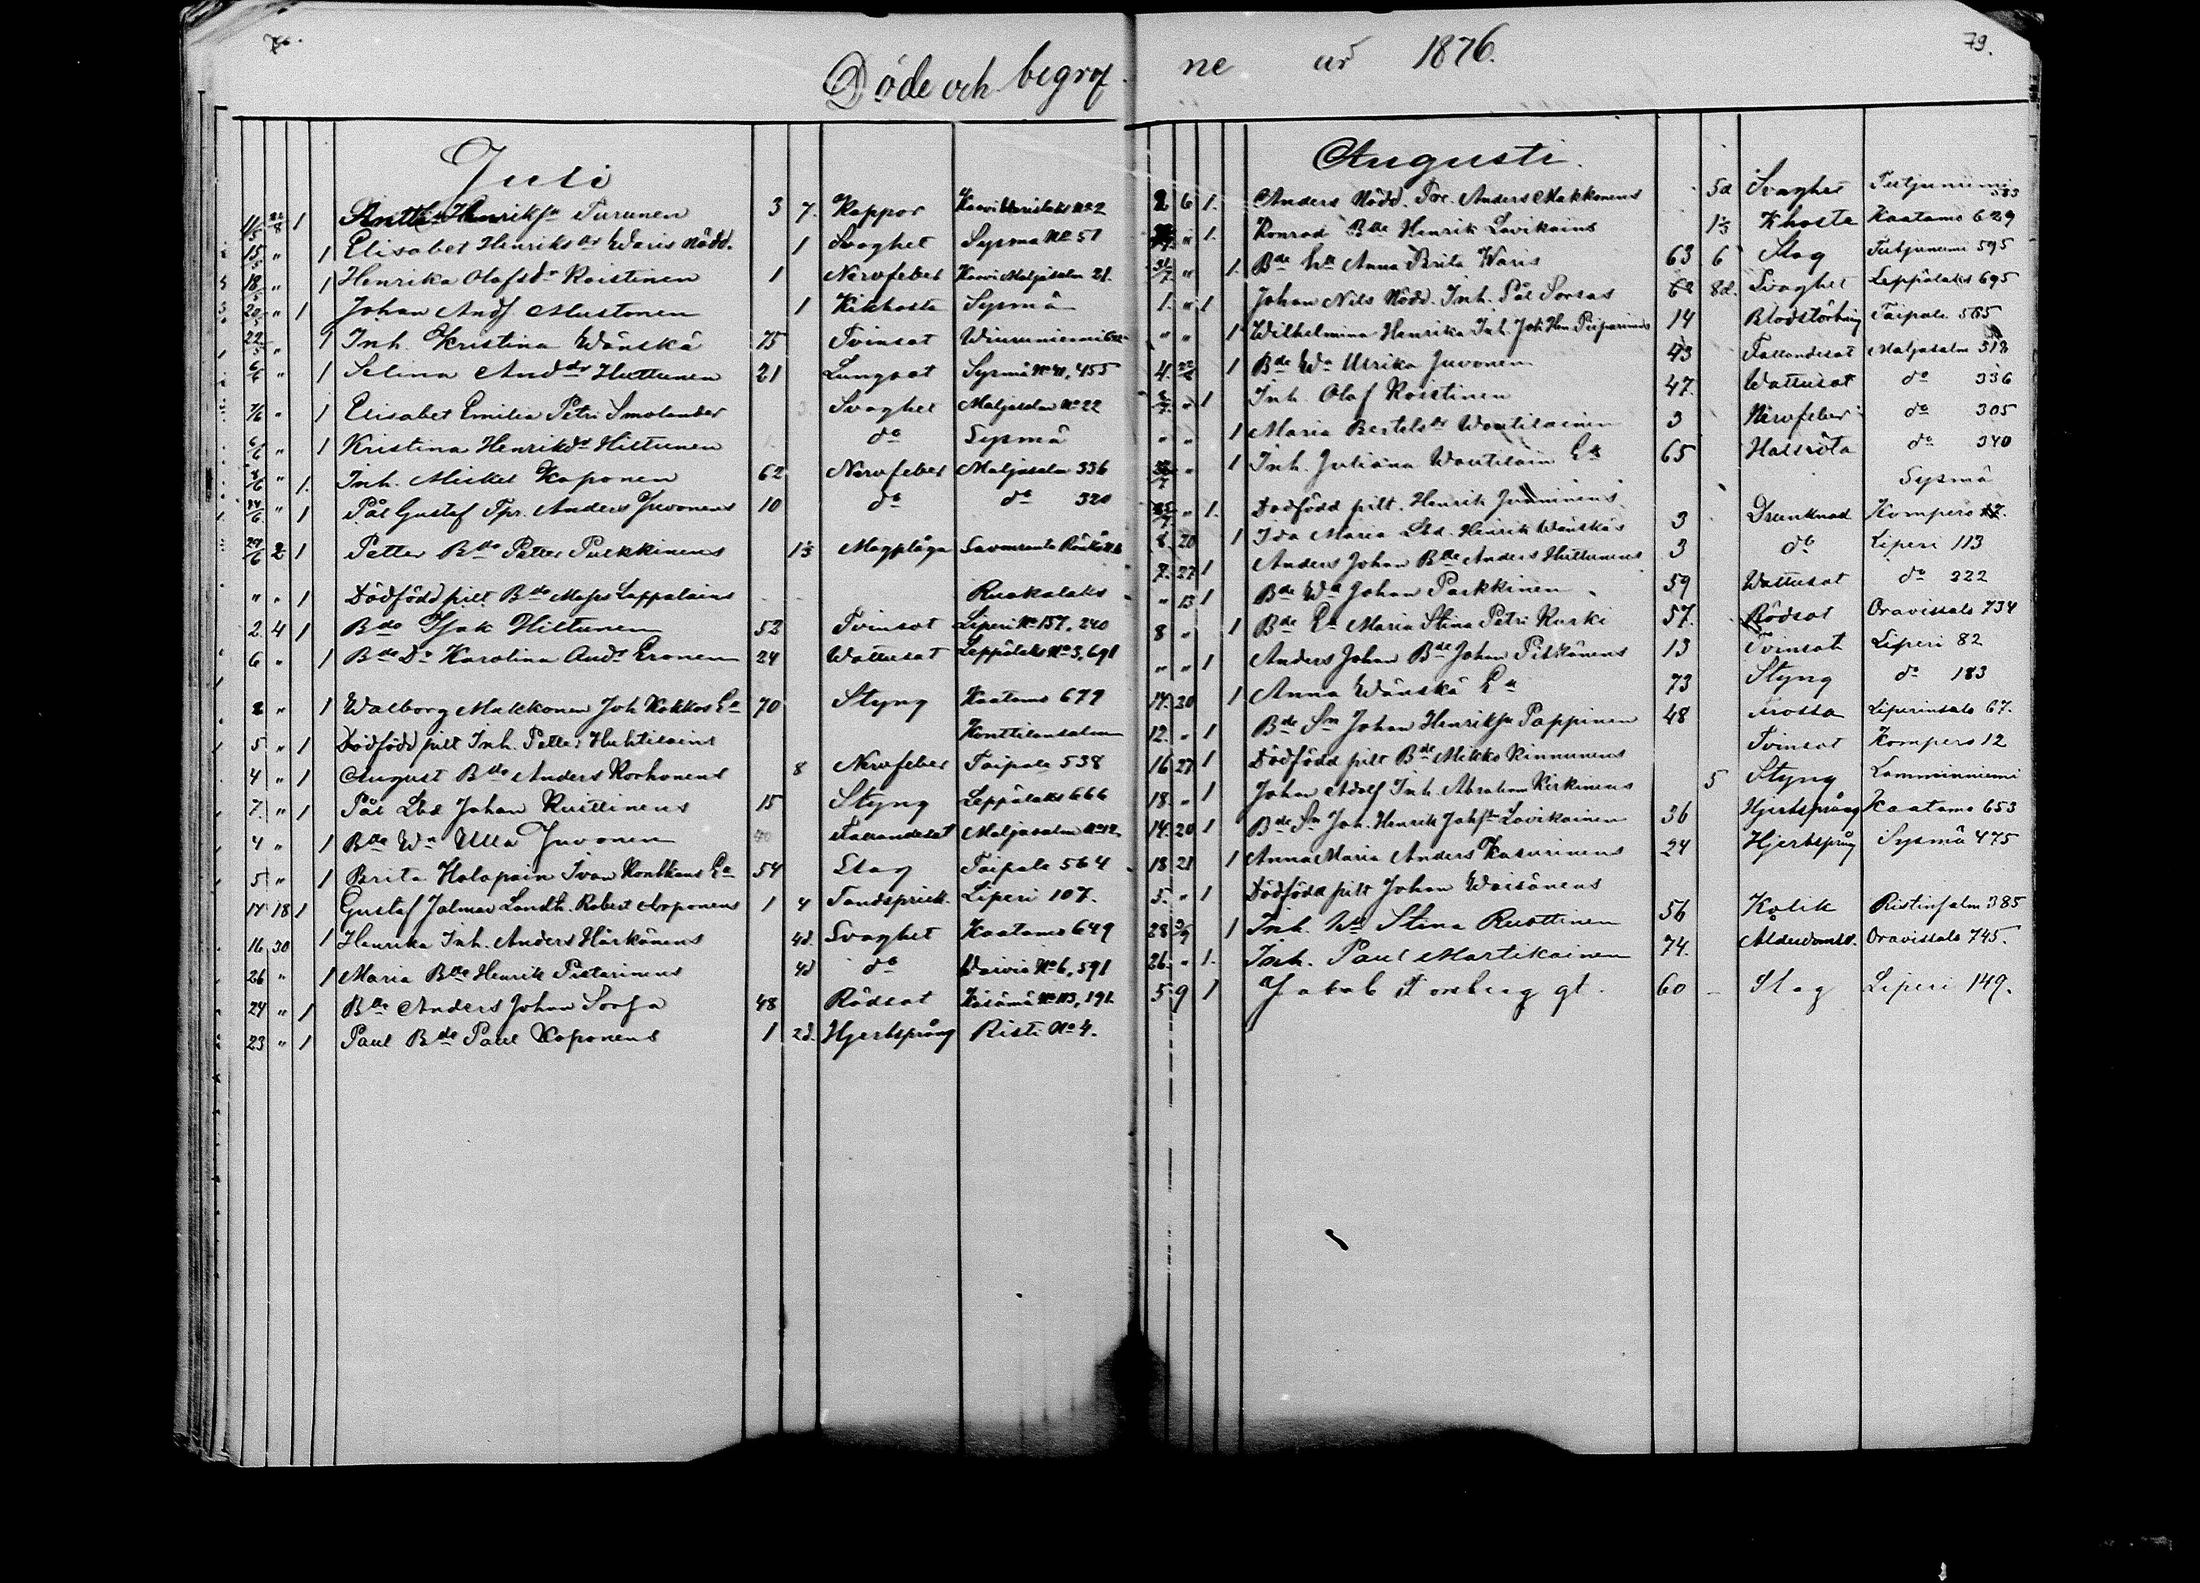 Döde och begrafne år 1876.
79.
Juli
11/5 22/8 1 Henriksn Turunen 3 7. Koppor No 2
15/5 " 1 Elisabet Henriksdr Waris Nödd. 1 Svaghet Sysmä No 51
18/5 " 1 Henrika Olofsdr Roistinen 1 Nervfeber Maljasalm 21.
20/5 " 1 Johan Andf Mustonen 1 Kikhosta Sysmä
22/5 " 1 Inh. Kristina Wänskä 75 Tvinsot
6/6 " 1 Selina Andsdr Huttunen 21 Lungsot Sysmä No 41, 455
7/6 " 1 Elisabet Emilia Petri Smolander Svaghet Maljasalm No 22
6/6 " 1 Kristina Henriksdr Hiltunen do Sysmä
8/6 " 1. Inh. Mickel Koponen 62 Nervfeber Maljasalm 336
24/6 " 1 Pål Gustaf Tpr. Anders Juvonens 10 do do 320
27/6 2 1 Petter Bde Petter Purkkinens 1/3 Magplåga
" " 1 Dödfödd pilt Bde Mats Lappalains Ruokolaks
2. 4 1 Bde Isak Hiltunen 52 Tvinsot Liperi No 157, 240
6 " 1 Bde Dr Karolina Andr Eronen 24 Wattusot Leppälaks No 3, 691
8 " 1 Walborg Makkonen Joh. Kokkos Ea 70 Styng Kaatamo 679
5 " 1 Dödfödd pilt Inh. Petter Huhtilains Konttilansalm
4 " 1 August Bde Anders Korhonens 8 Nervfeber Taipale 538
7. " 1 Pål Lbd Johan Ruittinens 15 Styng Leppälaks 666
4 " 1 Bde Wa Ulla Juvonen 40 Fallandesot Maljasalm No 12
5 " 1 Brita Holopain Ivan Kontkans Ea 54 Slag Taipale 564
14 18 1 Gustaf Jalmar Landb. Robert Aroponens 1 4 Tandsprick. Liperi 107.
16 30 1 Henrika Inh. Anders Härkönens 4d. Svaghet Kaatamo 649
26 " 1 Maria Bde Henrik Pistarinens 4d do Waivio No 6, 591
24 " 1 Bde Anders Johan Sorsa 48 Rödsot Käsämä No 113, 191.
23 " 1 Paul Bde Paul Koponens 1 2d. Hjertsprång Risti No 4.
Augusti.
2 6 1. Anders Nödd. Tor. Anders Makkonens 5d Svaghet Tutjuniemi 583
" 1. Konrad Bde Henrik Lovikains 1/3 Khosta Kaatamo 629
31/7 " 1. Bde Ha Anna Brita Waris 63 6 Slag Tutjuniemi 595
1. " 1 Johan Nils Nödd. Inh. Pål Sorsas 8d. Svaghet Leppälaks 695
" " 1 Wilhelmina Henrika Inh. Joh. Hen. Piiparinens 14 Blodstörtning Taipale 565
4. 1 Bde Wa Ulrika Juvonen 43 Fallandesot Maljasalm 312
" 1 Inh. Olof Roistinen 47. Wattusot do 336
" " 1 Maria Bertelsdr Woutilainen 3 Nervfeber do 305
" 1 Inh. Juliana Woutilain Ea 65 Halsröta do 340
" 1. Dödfödd pilt. Henrik Juuninens Sysmä
8. 20 1 Ida Maria Lbd. Henrik Wänskäs 3 Drunknad Kompero 17.
7. 27 1 Anders Johan Bde Anders Huttunens 3 do Liperi 113
" 13 1 Bde Wa Johan Parkkinen 59 Wattusot do 222
8 " 1 Bde Ea Maria Stina Petri Kurki 57. Rödsot Oravissalo 734
" " 1 Anders Johan Bde Johan Pitkänens 13 Tvinsot Liperi 82
17. 20 1 Anna Wänskä Ea 73 Styng do 183
12. " 1 Bde Sn Johan Henriksn Pappinen 48 Frossa Liperinsalo 67.
16 27 1 Dödfödd pilt Bde Mikko Kinnunens Tvinsot Kompero 12
18. " 1 Johan Adolf Inh. Abraham Kerkinens 5 Styng Lamminniemi
14. 20 1 Bde Sn Joh. Henrik Johsn Lovikainen 36 Hjertsprång Kaatamo 653
18 21 1 Anna Maria Anders Kasurinens 24 Hjertsprång Sysmä 475
5. " 1 Dödfödd pilt Johan Waisänens
28 3/9 1 Inh. Wa Stina Ruottinen 56 Kolik Ristinsalm 385
26. " 1. Inh. Paul Martikainen 74. Ålderdomsv. Oravissalo 745.
5 9 1 Jakob Forsberg gl. 60 – Slag Liperi 149.